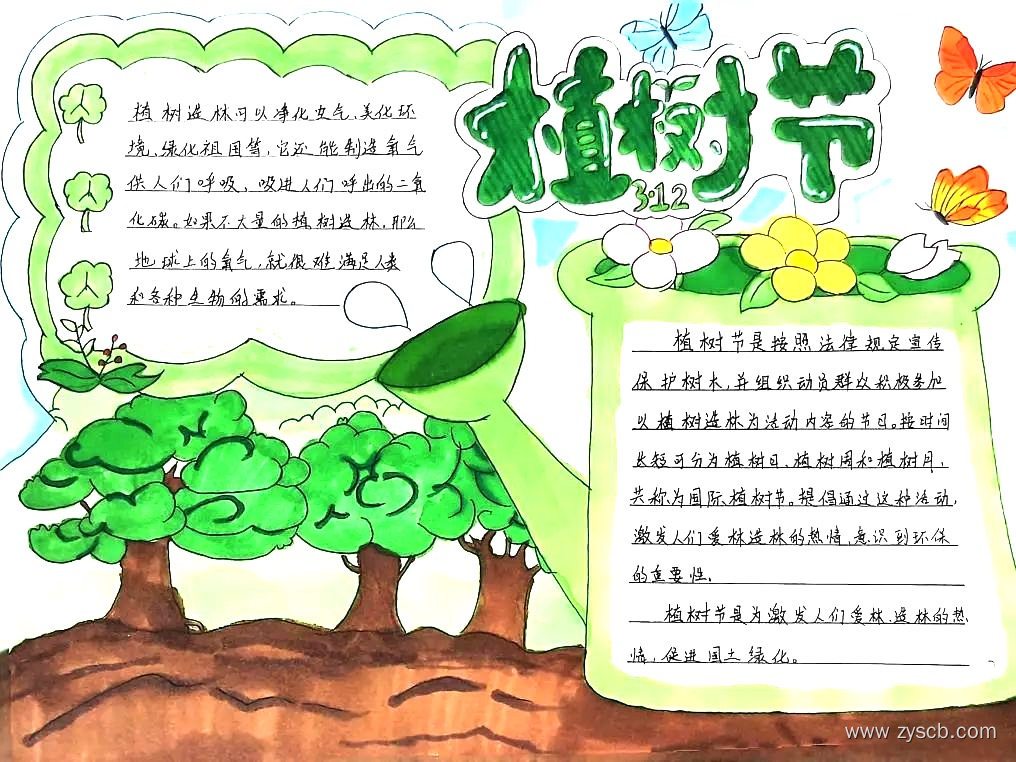 植树节
3·12
植树造林可以净化空气,美化环
境,绿化祖国等,它还能制造氧气
供人们呼吸,吸进人们呼出的二氧
化碳。如果不大量的植树造林,那么
地球上的氧气,就很难满足人类
和各种生物的需求。
植树节是按照法律规定宣传
保护树木,并组织动员群众积极参加
以植树造林为活动内容的节日。按时间
长短可分为植树日、植树周和植树月,
共称为国际植树节。提倡通过这种活动,
激发人们爱林造林的热情,意识到环保
的重要性.
植树节是为激发人们爱林、造林的热
情,促进国土绿化。
www.zyscb.com